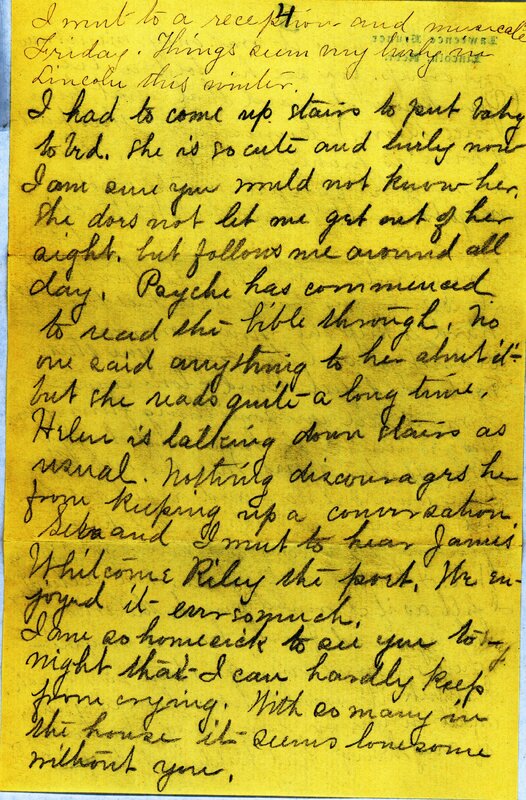 4
I went to a reception and musicale
Friday. Things seem very lively in
Lincoln this winter.
I had to come up stairs to put baby
to bed. She is so cute and lively now
I am sure you would not know her.
She does not let me get out of her
sight, but follows me around all
day. Psyche has commenced
to read the bible through. No
one said anything to her about it
but she reads quite a long time.
Helen is talking down stairs as
usual. Nothing discourages her
from keeping up a conversation
and I went to hear James
Whitcome Riley the poet. We en-
joyed it ever so much.
I am so homesick to see you to-
night that I can hardly keep
from crying. With so many in
the house it seems lonesome
without you.